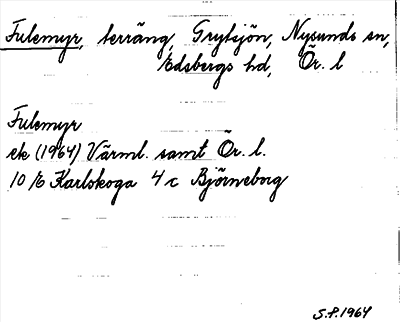 Fulemyr, terräng, Grytsjön, Nysunds sn,
Edsbergs hd, Ör. l
Fulemyr
ek (1964) Värml. samt Ör. l.
10 E Karlskoga 4 c Björneborg
S.P. 1964